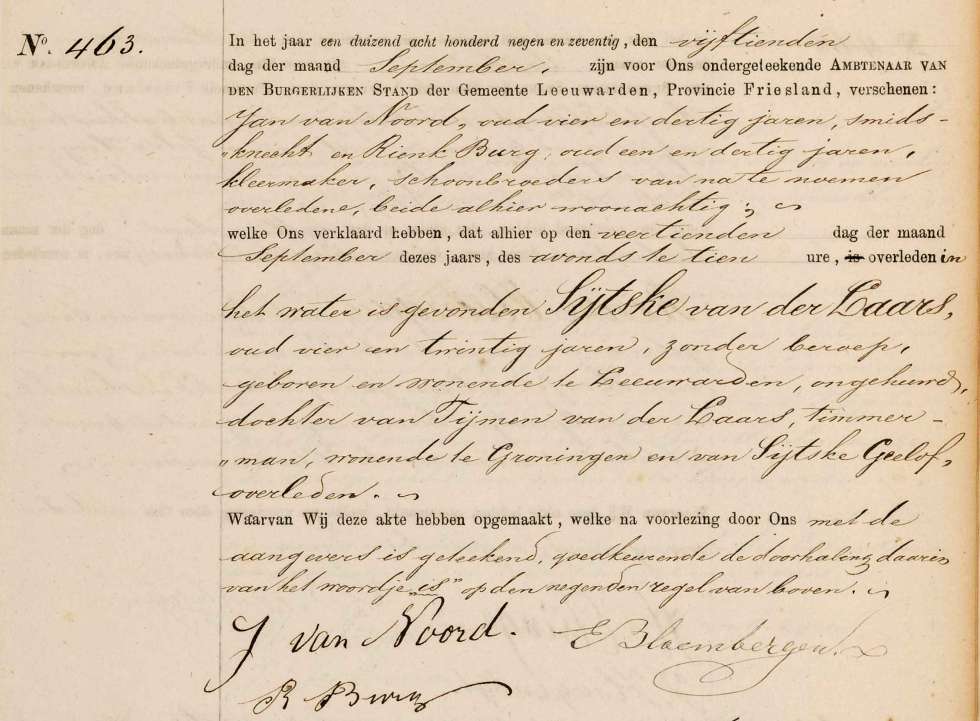 No. 463.
In het jaar een duizend acht honderd negen en zeventig, den vijftienden
dag der maand September, zijn voor Ons ondergeteekende AMBTENAAR VAN
DEN BURGERLIJKEN STAND der Gemeente Leeuwarden, Provincie Friesland, verschenen:
Jan van Noord, oud vier en dertig jaren, smids-
"knecht en Rienk Burg, oud een en dertig jaren,
kleermaker, schoonbroeders van na te noemen
overledene, beide alhier woonachtig;
welke Ons verklaard hebben, dat alhier op den veertienden dag der maand
September dezes jaars, des avonds te tien ure, is overleden in
het water is gevonden Sijtske van der Laars,
oud vier en twintig jaren, zonder beroep,
geboren en wonende te Leeuwarden, ongehuwd,
dochter van Tijmen van der Laars, timmer-
"man, wonende te Groningen en van Sijtske Geelof,
overleden.
Waarvan Wij deze akte hebben opgemaakt, welke na voorlezing door Ons met de
aangevers is geteekend, goedkeurende de doorhaling daarin
van het woordje "is" op den negenden regel van boven.
J van Noord. E Bloembergen.
R Burg